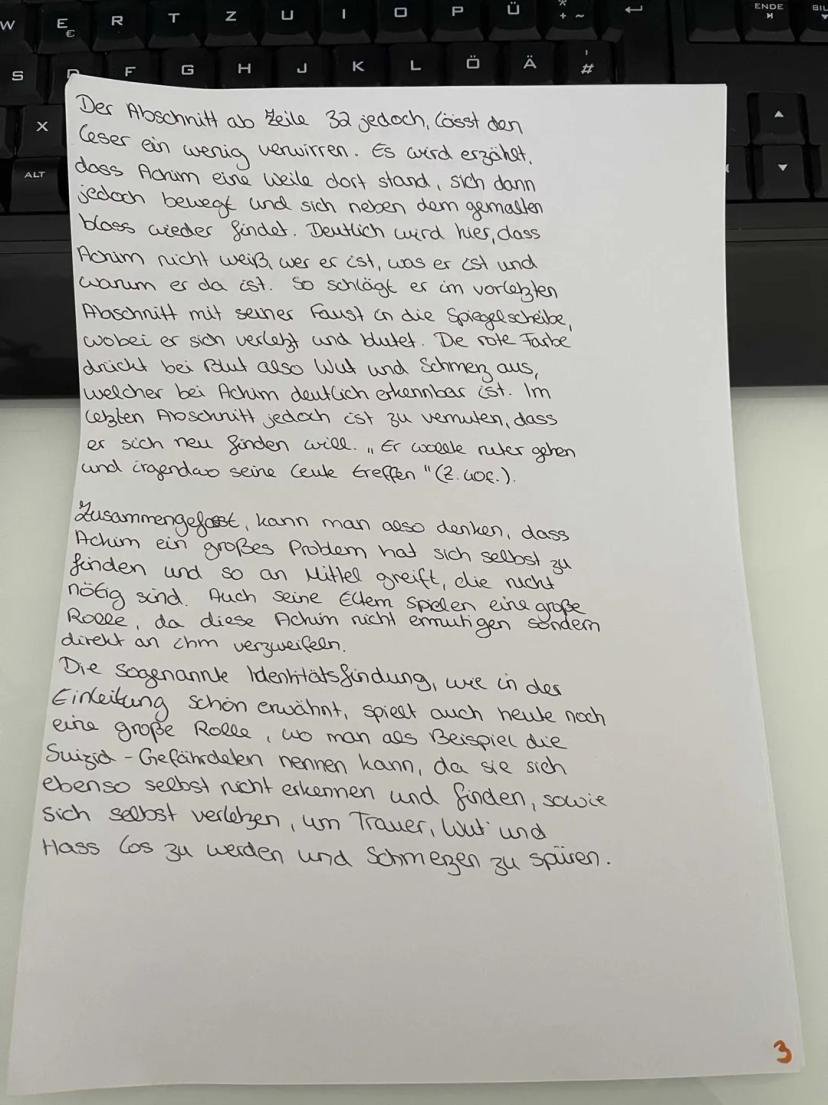 W E € R T Z U I O P Ü * + ~ ENDE
S D F G H J K L Ö Ä ' #
X
ALT
Der Abschnitt ab Zeile 32 jedoch, lässt den
Leser ein wenig verwirren. Es wird erzählt,
dass Achim eine Weile dort stand, sich dann
jedoch bewegt und sich neben dem gemalten
bloss wieder findet. Deutlich wird hier, dass
Achim nicht weiß, wer er ist, was er ist und
warum er da ist. So schlägt er im vorletzten
Abschnitt mit seiner Faust in die Spiegelscheibe,
wobei er sich verletzt und blutet. Die rote Farbe
drückt bei Blut also Wut und Schmerz aus,
welcher bei Achim deutlich erkennbar ist. Im
letzten Abschnitt jedoch ist zu vermuten, dass
er sich neu finden will. „Er wollte runter gehen
und irgendwo seine Leute treffen" (Z. 40f.).
Zusammengefasst, kann man also denken, dass
Achim ein großes Problem hat sich selbst zu
finden und so an Mittel greift, die nicht
nötig sind. Auch seine Eltern spielen eine große
Rolle, da diese Achim nicht ermutigen sondern
direkt an ihm verzweifeln.
Die sogenannte Identitätsfindung, wie in der
Einleitung schon erwähnt, spielt auch heute noch
eine große Rolle, wo man als Beispiel die
Suizid-Gefährdeten nennen kann, da sie sich
ebenso selbst nicht erkennen und finden, sowie
sich selbst verletzen, um Trauer, Wut und
Hass los zu werden und Schmerzen zu spüren.
3